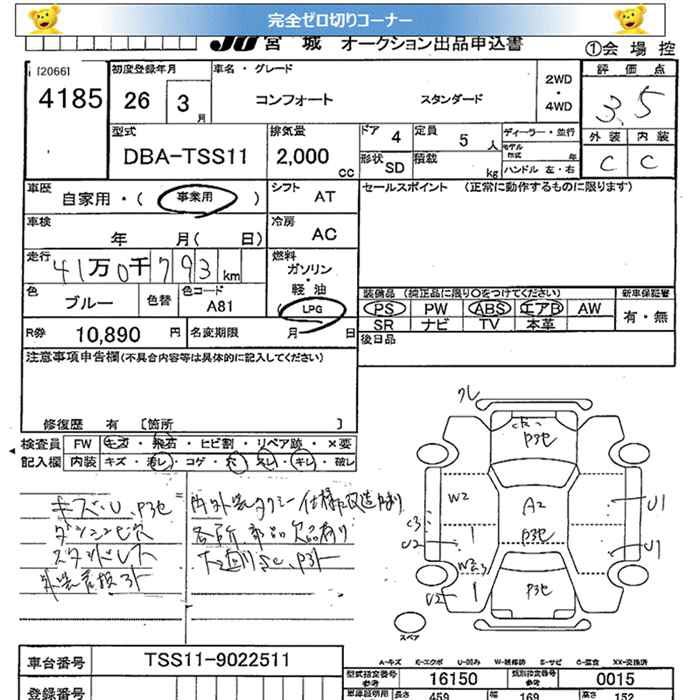 完全ゼロ切りコーナー
JU 宮城 オークション出品申込書
①会場控
[2066]
4185
初度登録年月
26 3 月
車名・グレード
コンフォート スタンダード
2WD
・
4WD
評価点
3.5
型式
DBA-TSS11
排気量
2,000 cc
ドア 4
定員 5 人
形状 SD
積載 kg
ディーラー・並行
モデル年式 年
ハンドル 左・右
外装 内装
C C
車歴
自家用・( 事業用 )
シフト AT
セールスポイント (正常に動作するものに限ります)
車検
年 月( 日)
冷房 AC
走行
41万0千793km
燃料
ガソリン
・
軽油
( LPG )
色 ブルー
色替
色コード A81
装備品 (純正品に限り〇をつけてください)
新車保証書
PS PW ABS エアB AW
有・無
SR ナビ TV 本革
R券 10,890 円
名変期限 月 日
後日品
注意事項申告欄(不具合内容等は具体的に記入してください)
修復歴 有 [箇所 ]
検査員 FW キズ・飛石・ヒビ割・リペア跡・×要
記入欄 内装 キズ・汚レ・コゲ・穴・スレ・キレ・破レ
キズU、P3他
スタッドレス
内外装タクシー仕様改造有り
各所部品欠品有り
下廻りSC、P3ト
P3他
W2
A2
P3他
U1
C3
U2
U1
W3
U2
P3他
スペア
A-キズ E-エクボ U-凹み W-補修跡 S-サビ C-腐食 XX-交換済
車台番号 TSS11-9022511
型式指定番号 参考 16150
類別指定番号 参考 0015
登録番号
車庫証明用 長さ 459 幅 169 高さ 152